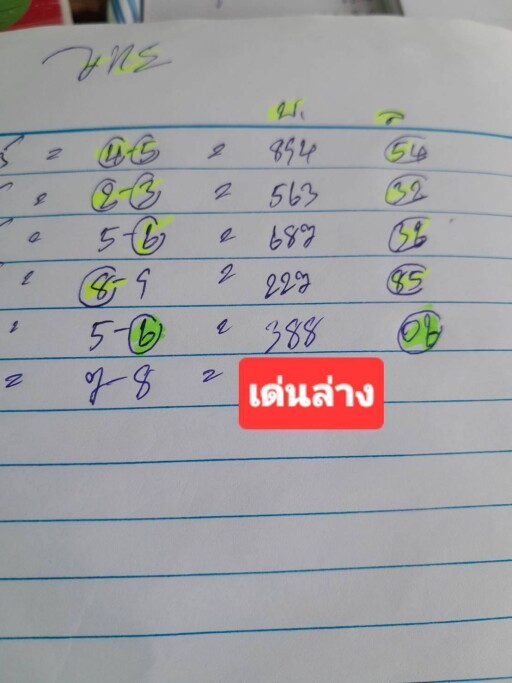 บ. ล
= 4-5 = 894 54
= 2-3 = 563 32
= 5-6 = 687 36
= 8-9 = 227 85
= 5-6 = 388 06
= 7-8 =
เด่นล่าง